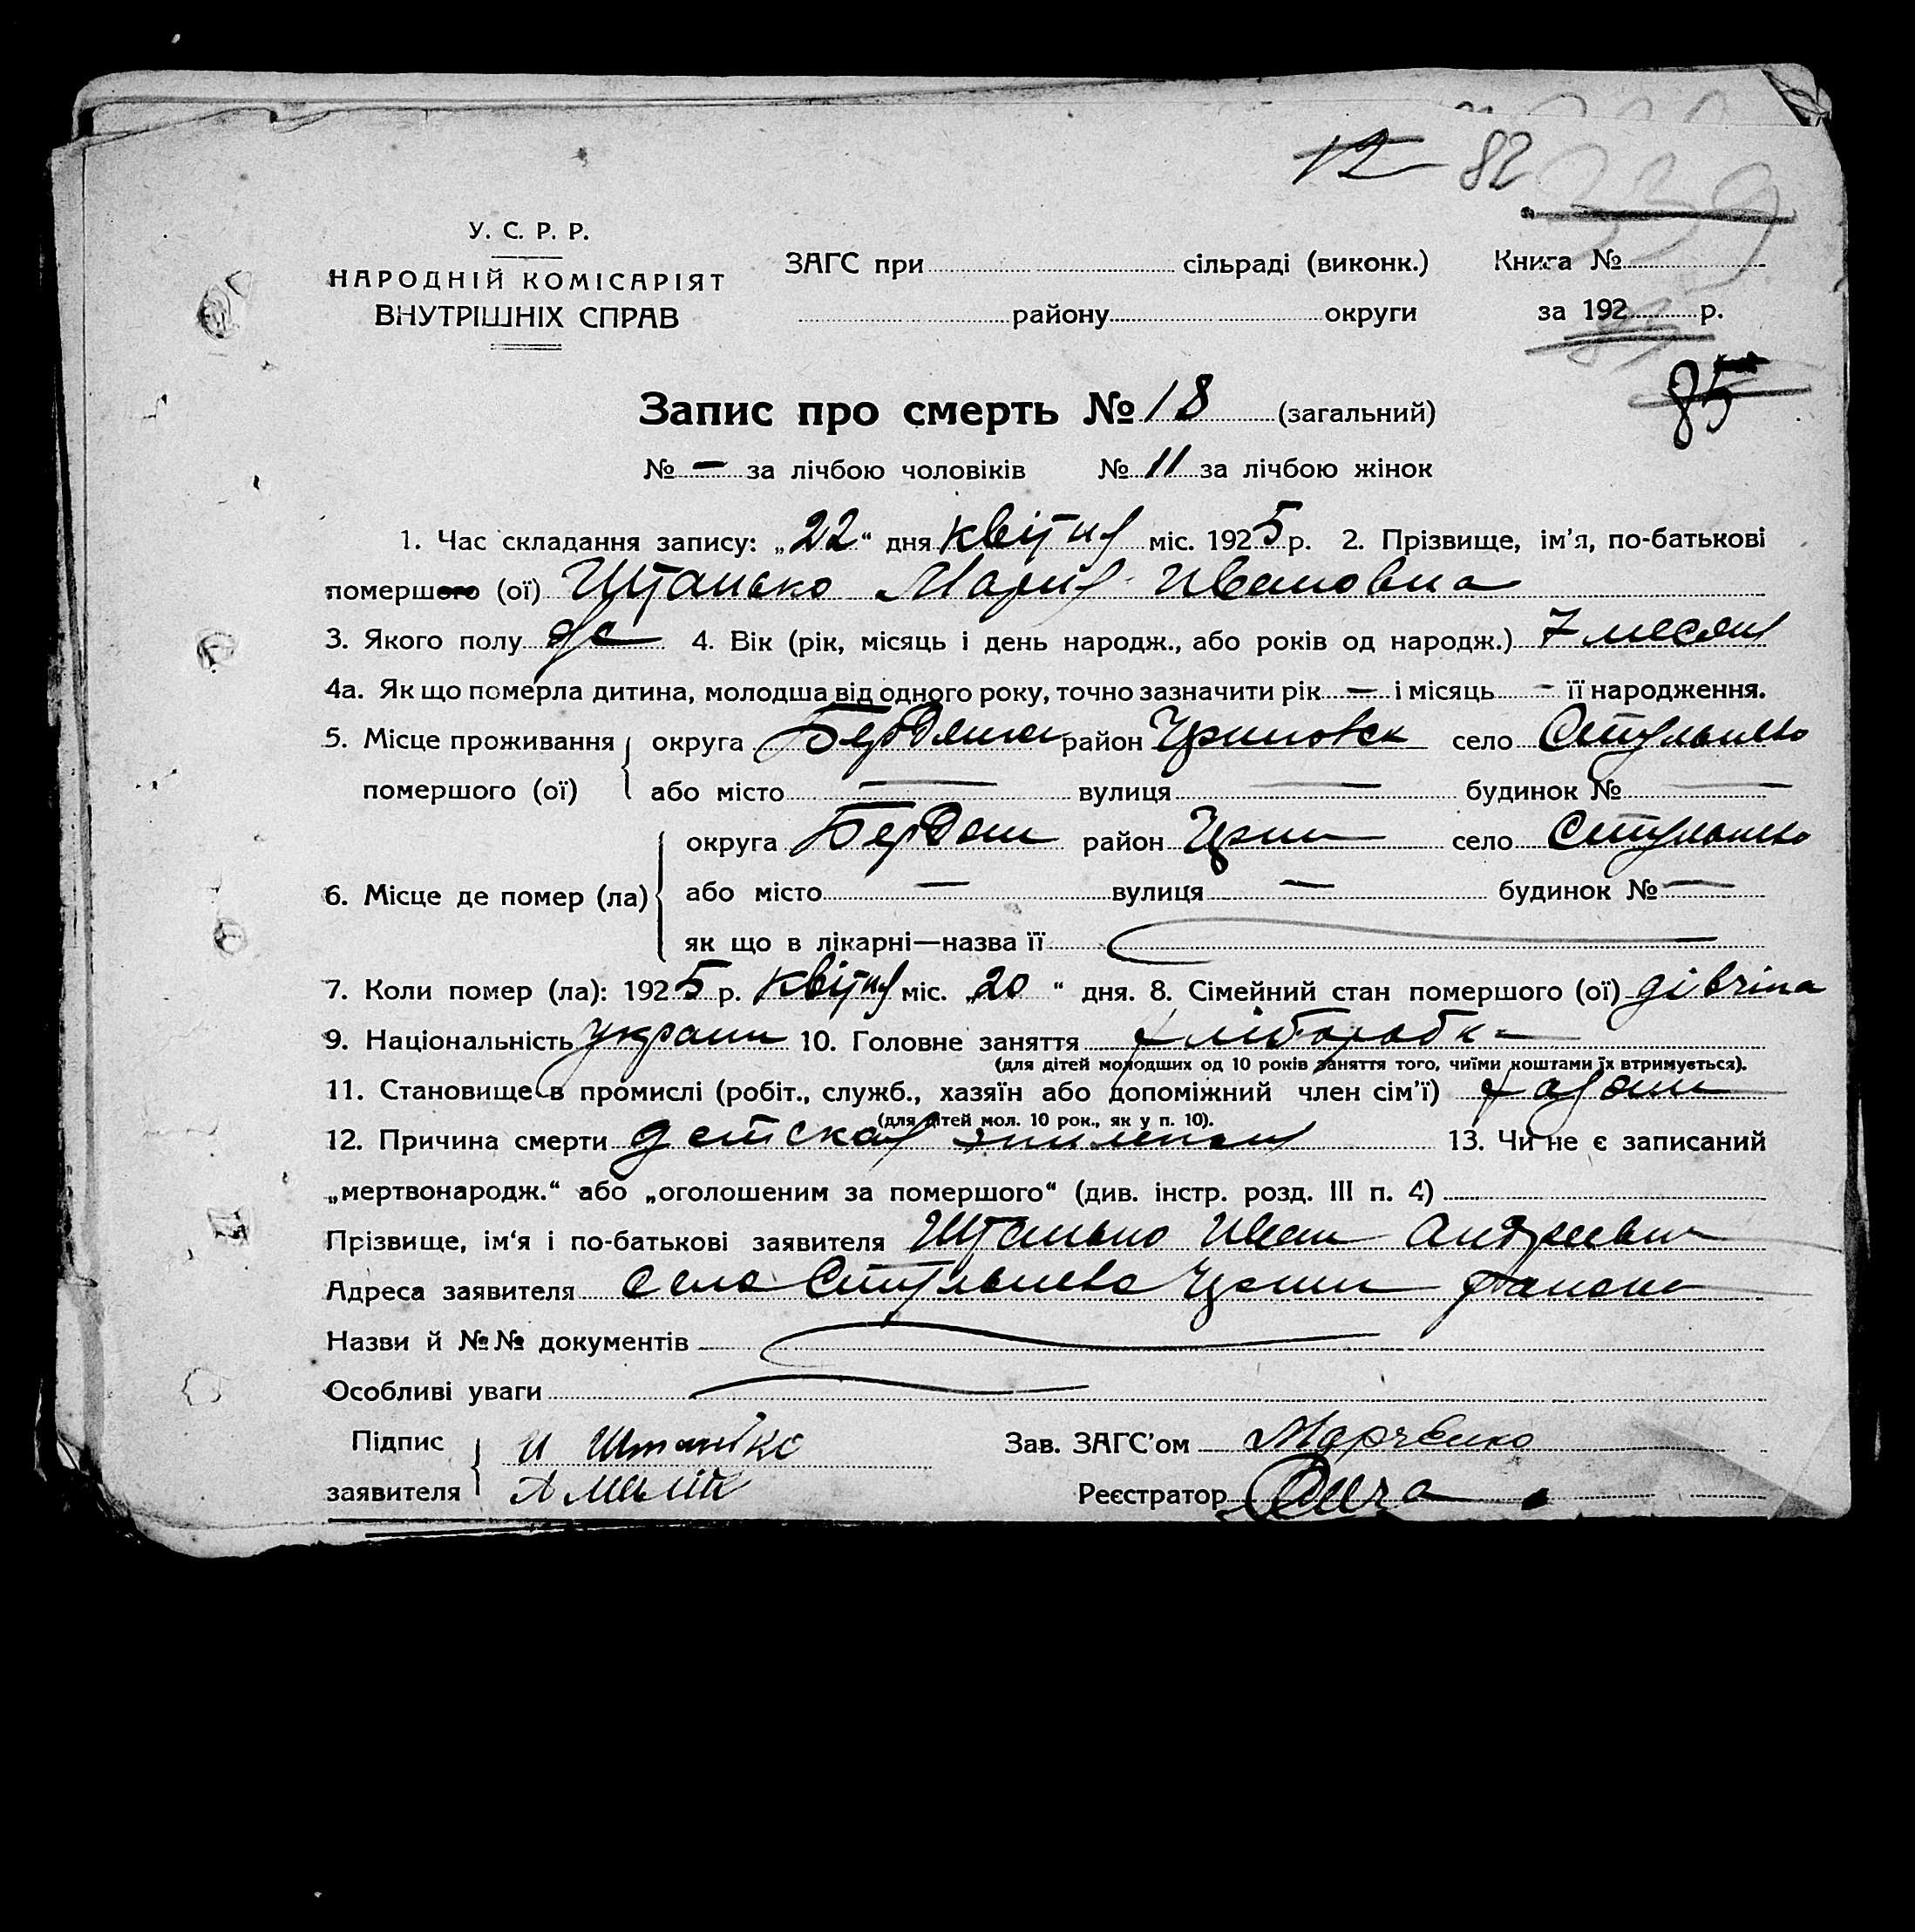 12 82 339
У. С. Р. Р.
НАРОДНІЙ КОМІСАРІЯТ ЗАГС при сільраді (виконк.) Книга №
ВНУТРІШНІХ СПРАВ району округи за 192 р.
85
Запис про смерть № 18 (загальний)
№ — за лічбою чоловіків № 11 за лічбою жінок
1. Час складання запису: „22“ дня квітня міс. 1925 р. 2. Прізвище, ім’я, по-батькові
помершого (ої) Штанько Мария Ивановна
3. Якого полу ж 4. Вік (рік, місяць і день народж., або років од народж.) 7 месяц
4а. Як що померла дитина, молодша від одного року, точно зазначити рік — і місяць - її народження.
5. Місце проживання округа Бердянск район село Стульнево
помершого (ої) або місто — вулиця — будинок № —
округа Бердян район село Стульнево
6. Місце де помер (ла) або місто — вулиця — будинок № —
як що в лікарні—назва її
7. Коли помер (ла): 1925 р. квітня міс. „20“ дня. 8. Сімейний стан помершого (ої) дівчіна
9. Національність украин 10. Головне заняття хліборобк
(для дітей молодших од 10 років заняття того, чиїми коштами їх втримується).
11. Становище в промислі (робіт., служб., хазяїн або допоміжний член сім’ї) хазяин
(для дітей мол. 10 рок., як у п. 10).
12. Причина смерти детская 13. Чи не є записаний
„мертвонародж.“ або „оголошеним за помершого“ (див. інстр. розд. III п. 4)
Прізвище, ім‘я і по-батькові заявителя Штанько Иван Андреевич
Адреса заявителя село Стульнево района
Назви й №№ документів
Особливі уваги
Підпис И Штанько Зав. ЗАГС’ом Марченко
заявителя Реєстратор